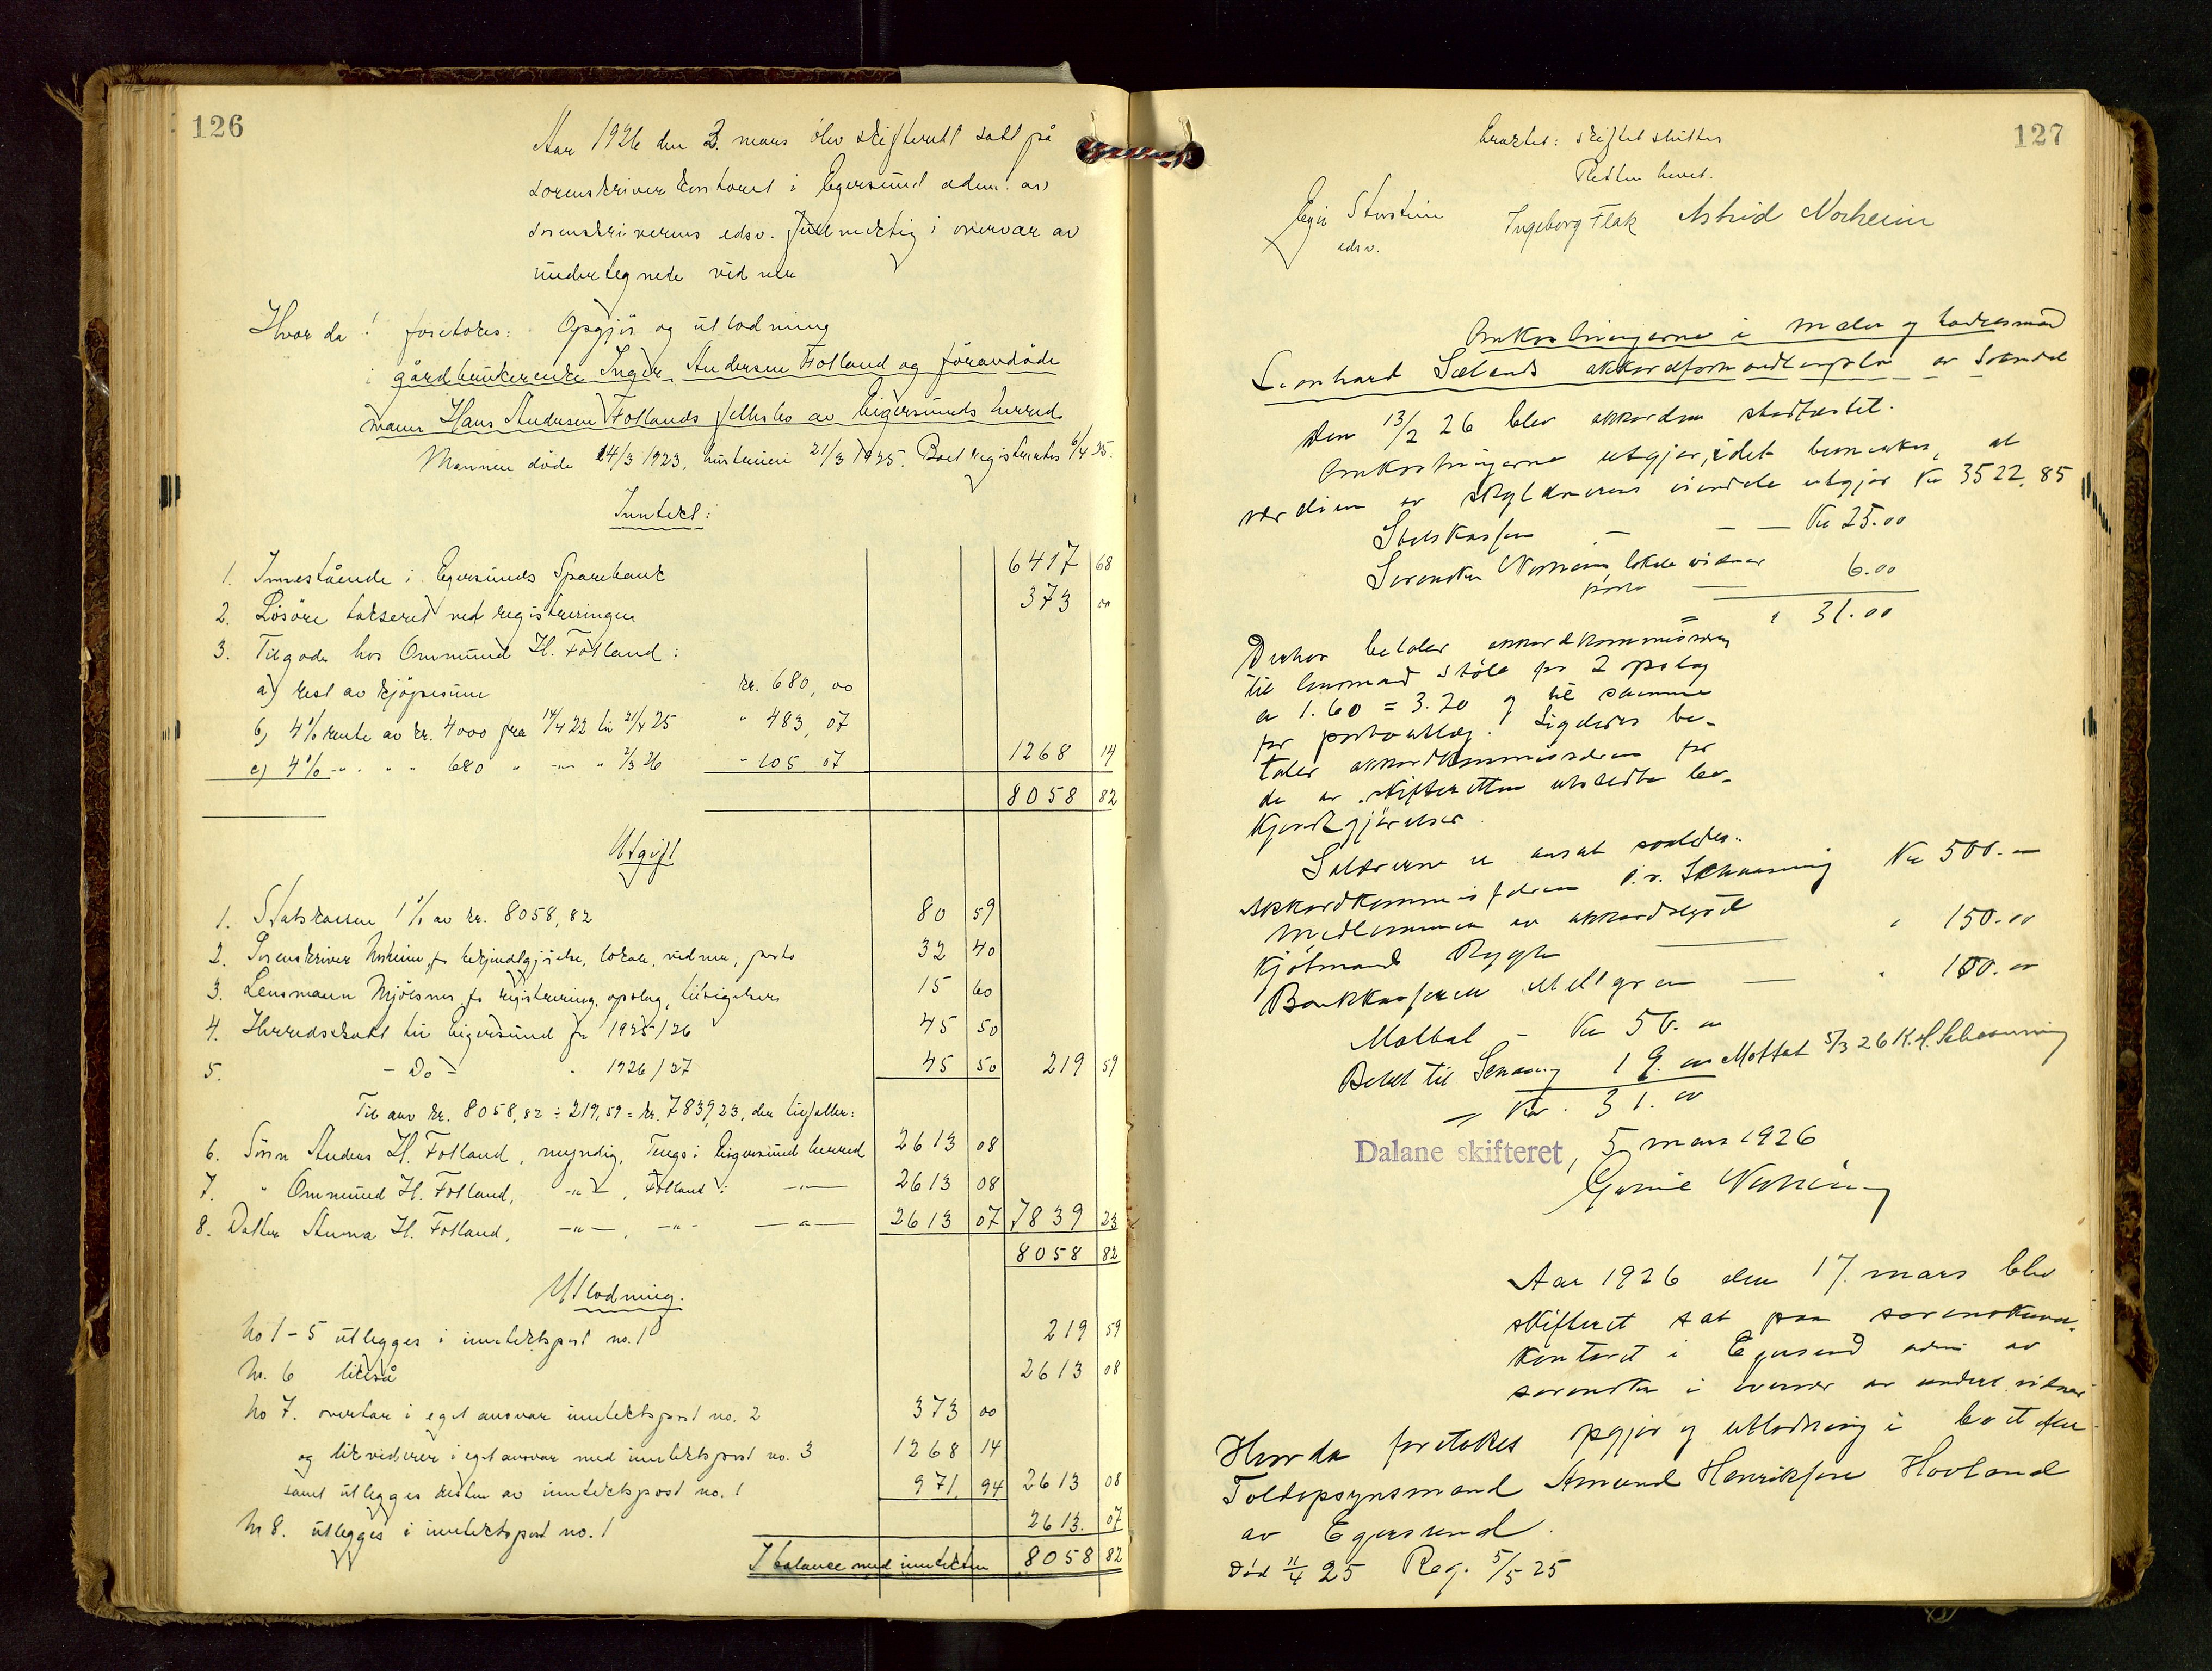 126
Aar 1926 den 2. mars blev skifterett satt på
sorenskriverkontoret i Egersund adm. av
sorenskriverens edsv. fullmektig i overvær av
undertegnede vidner
Hvor da! foretokes: Opgjör og utlodning
i gårdbrukerenke Inger Andersen Fotland og föravdöde
mann Hans Andersen Fotlands fellesbo av Eigersunds herred
Mannen döde 14/3 1923, hustruen 21/3 1925. Boet registrertes 6/4 25.
Inntekt:
1. Innestående i Egersunds Sparebank 6417 68
2. Lösöre taksert ved registreringen 373 00
3. Tilgode hos Ommund H. Fotland:
a) rest av kjöpesum kr. 680,00
b) 4% rente av kr. 4000 fra 14/4 22 til 21/4 25 " 483,07
c) 4% -"- " " 680 " -"- " 2/3 26 " 105 07 1268 14
8058 82
Utgift
1. Statskassen 1% av kr. 8058,82 80 59
2. Sorenskriver Norheim fr bekjendtgjörelse, lokale, vidner, porto 32 40
3. Lensmann Mjölsnes fr registrering, opslag, tilsigelser 15 60
4. Herredsskatt til Eigersund fr 1925/26 45 50
5. - Do - 1926/27 45 50 219 59
Til arv kr. 8058,82 ÷ 219,59 = kr. 7839,23, der tilfaller:
6. Sönn Anders H. Fotland, myndig, Tengs i Eigersund herred 2613 08
7. " Ommund H. Fotland, -"-, Fotland i -"- 2613 08
8. Datter Anna H. Fotland, -"-, -"- -"- 2613 07 7839 23
8058 82
Utlodning.
No 1-5 utlegges i inntektspost no. 1 219 59
No. 6 likeså 2613 08
No 7. overtar i eget ansvar inntektspost no. 2 373 00
og likviderer i eget ansvar med inntektspost no. 3 1268 14
samt utlegges resten av inntektspost no. 1 971 94 2613 08
No 8. utlegges i inntektspost no. 1 2613 07
I balance med inntekten 8058 82
127
skiftet sluttes
Retten hevet.
edsv. Ingeborg Flak Astrid Norheim
Omkostningerne i maler og
Leonhard Sælands akkordforhandlingsbo av
Den 13/2 26 blev akkorden stadfæstet.
Omkostningerne utgjør, idet bemerkes, at
verdien av skyldnerens eiendele utgjør Kr 3522,85
Statskassen - - - Kr 25.00
Sorenskr Norheim lokale vidner 6.00
porto
= " 31.00
Derhos betaler akkordkommissæren
til lensmand Støle for 2 opslag
a 1.60 = 3.20 og til samme
for portoutlæg. Ligeledes be-
taler akkordkommissæren for
de av skifteretten utstedte be-
kjendtgjørelser.
Salærerne er ansat saaledes:
Akkordkommissæren o.r. Schaanning Kr 500.-
Medlemmer av akkordstyret
Kjøbmand Rygh " 150.00
Bankkasserer Mellgren - " 100.00
Motbat - Kr 50.00
Betalt til Schaanning 19.00 Mottat 5/3 26 K. H. Schaanning
= Kr. 31.00
Dalane skifteret, 5 mars 1926
Aar 1926 den 17. mars blev
skifteret sat paa sorenskriver-
kontoret i Egersund adm av
sorenskr i overvær av undert. vidner
Hvor da foretokes opgjør og utlodning i boet efter
Toldopsynsmand Amund Henriksen Hovland
av Egersund.
Død 11/4 25 Reg. 5/5 25